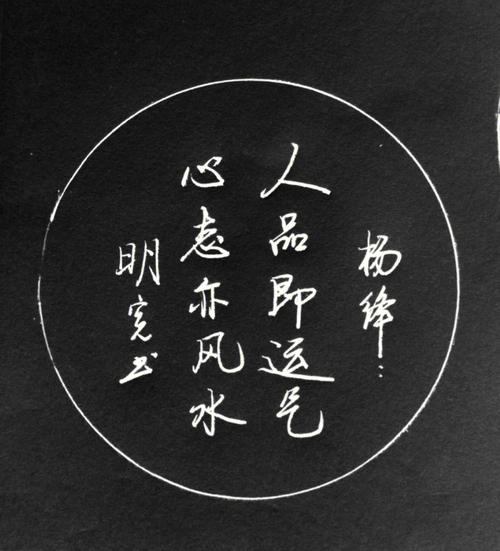 杨绛:
人品即运气
心态亦风水
明宪书